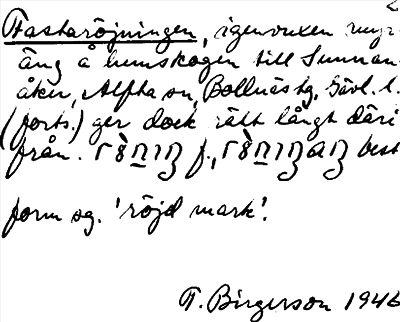 Hastaröjningen, igenvuxen myr-
äng å hemskogen till Sunnan-
åker, Alfta sn, Bollnäs tg, Gävl. l.
(forts.) ger dock rätt långt däri
från. f., best
form sg. 'röjd mark'.
T. Birgerson 1946